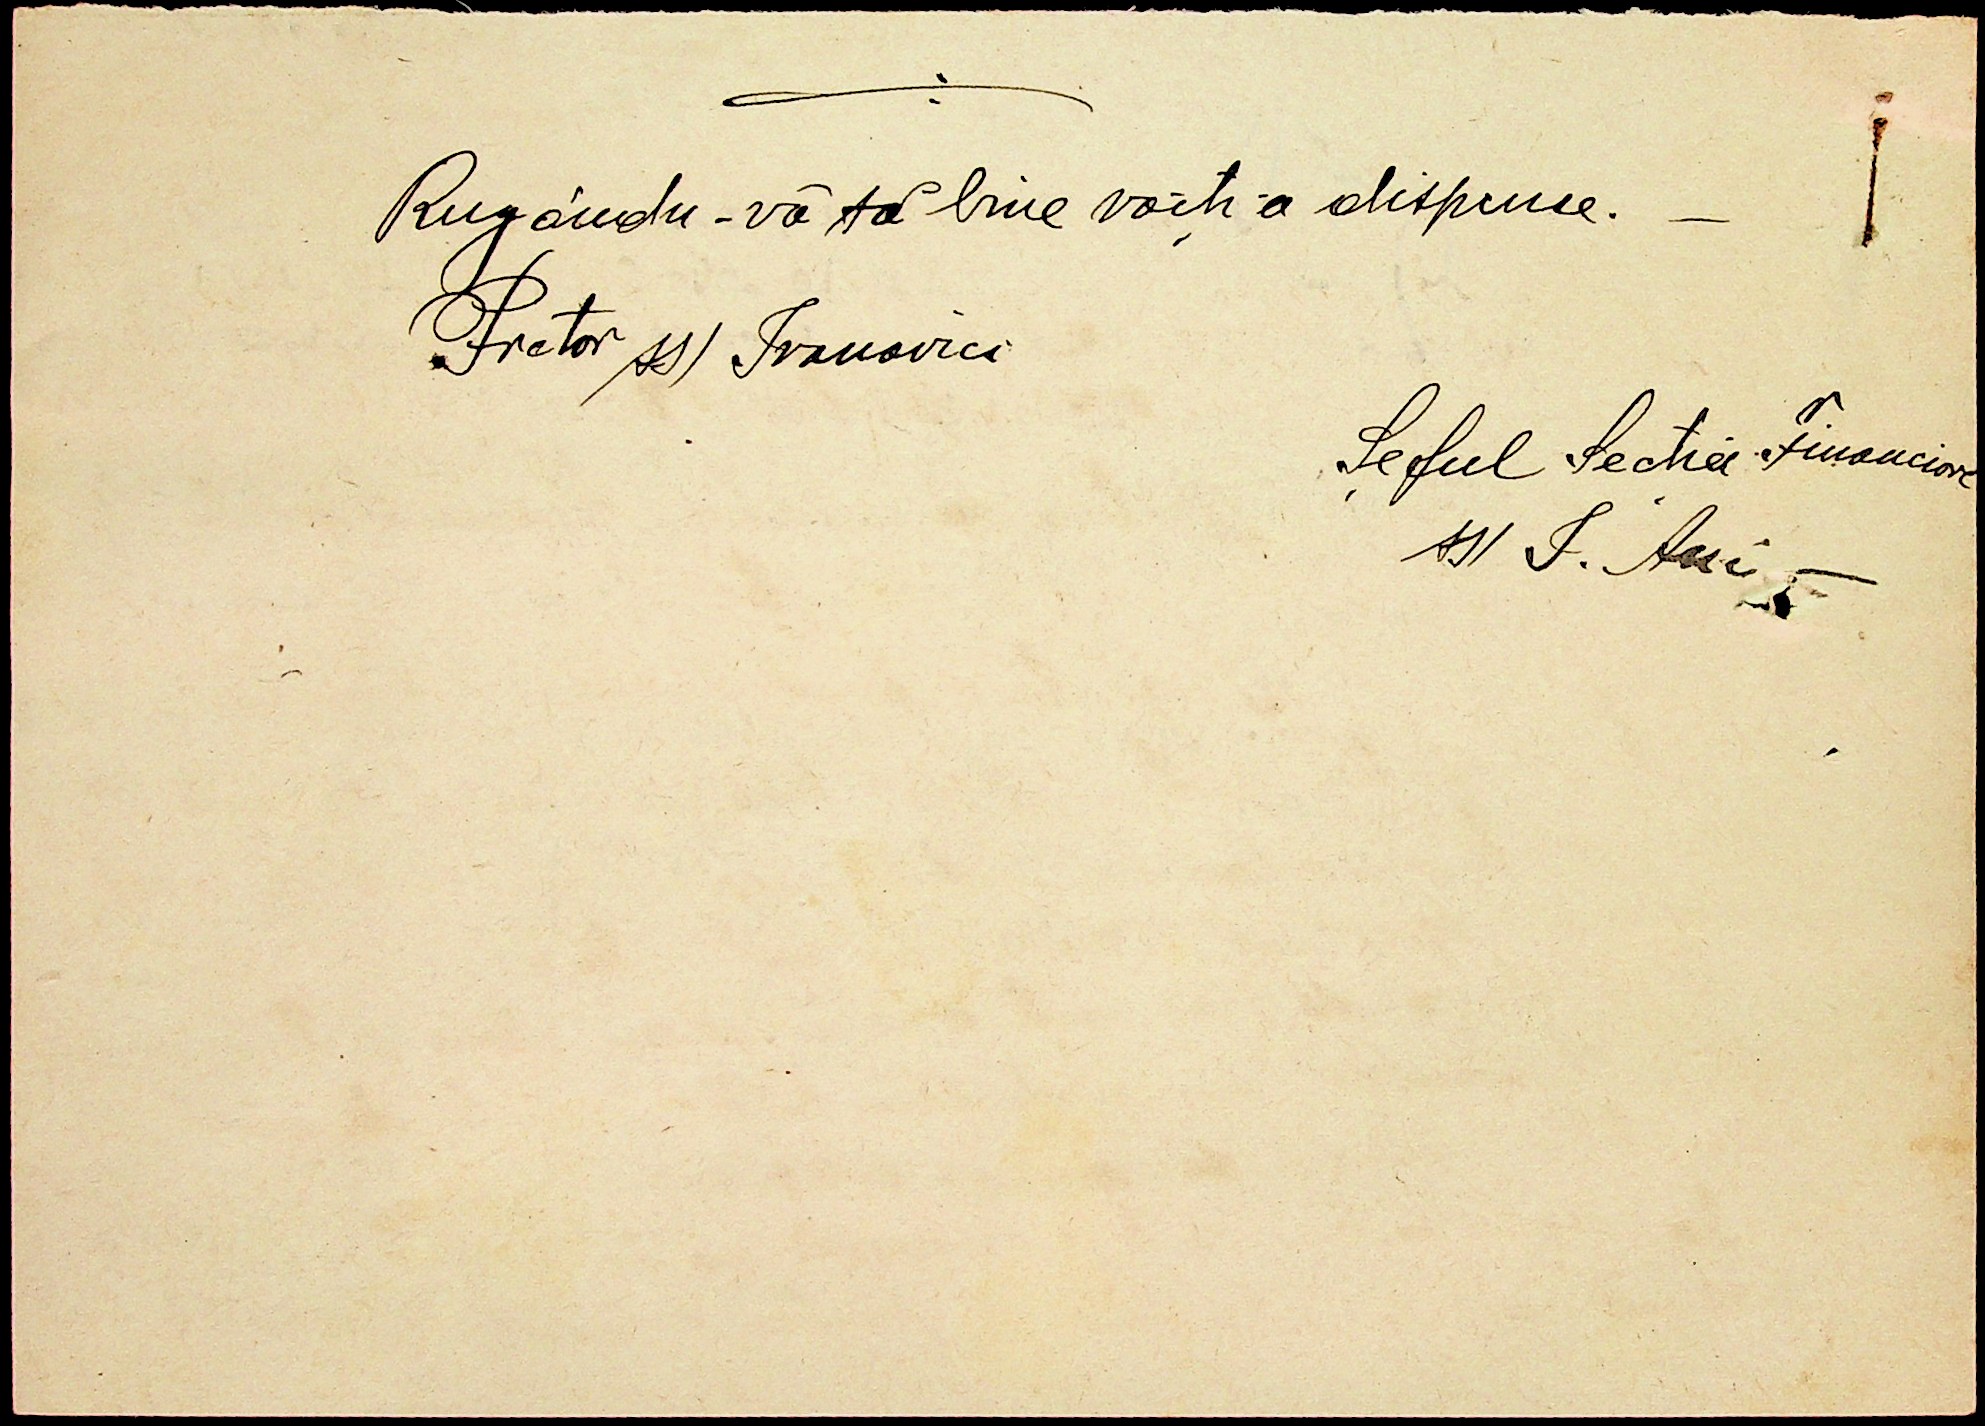 Rugându-vă să bine voiți a dispune. —
Pretor ss/ Ivanovici
Șeful Secției Financiare
ss/ I.